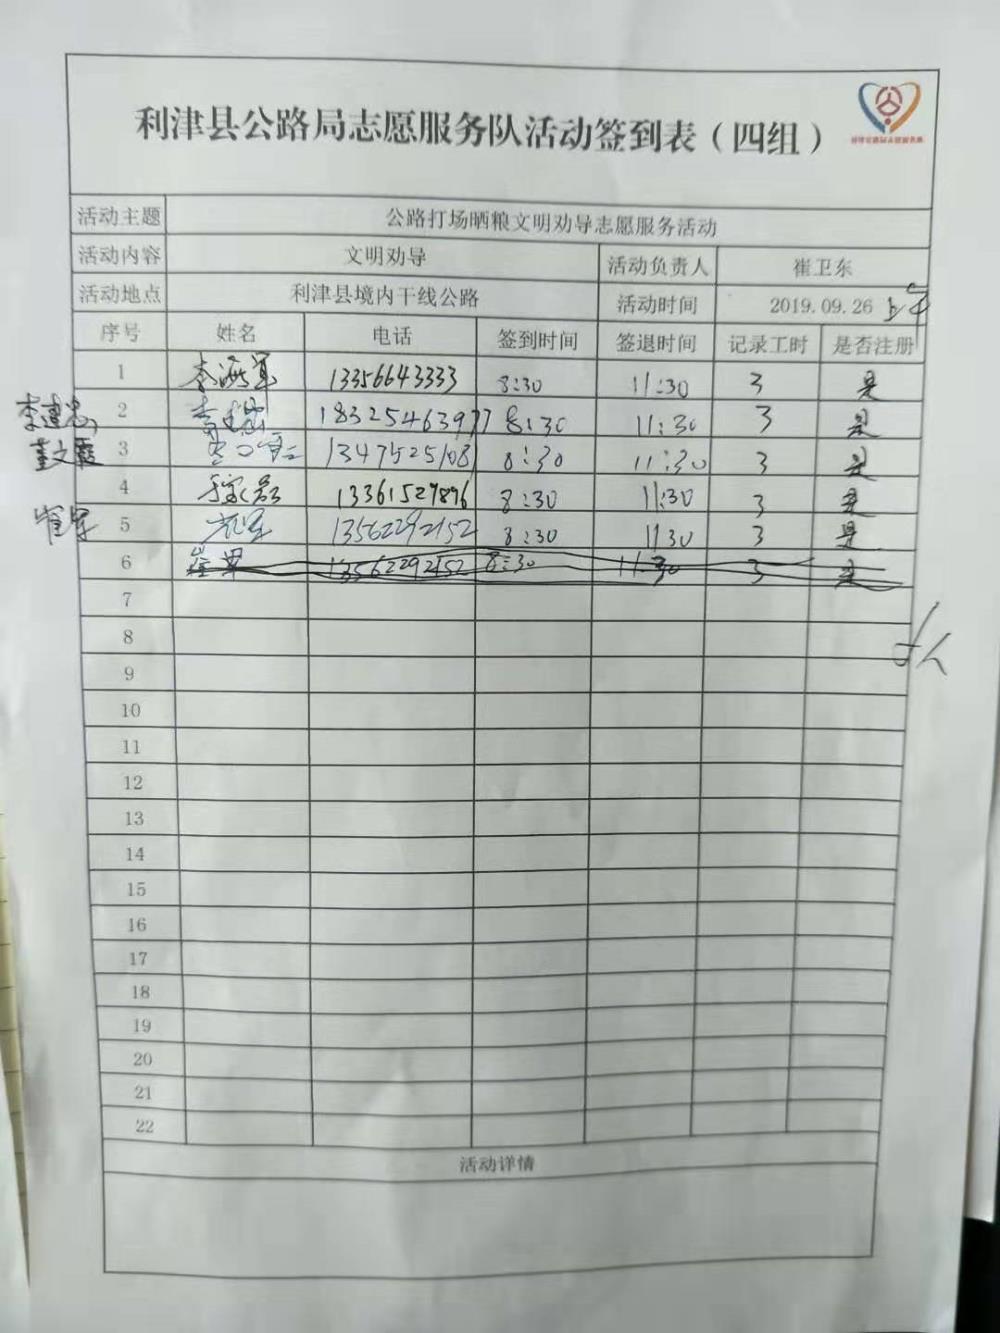 利津县公路局志愿服务队活动签到表（四组）
活动主题 公路打场晒粮文明劝导志愿服务活动
活动内容 文明劝导 活动负责人 崔卫东
活动地点 利津县境内干线公路 活动时间 2019.09.26 上午
序号 姓名 电话 签到时间 签退时间 记录工时 是否注册
1 李海军 13356643333 8:30 11:30 3 是
李建忠 2 18325463977 8:30 11:30 3 是
董文霞 3 13475251081 8:30 11:30 3 是
4 13361527896 8:30 11:30 3 是
崔军 5 崔军 13562292152 8:30 1130 3 是
6 崔军 13562292152 8:30 11:30 3 是
7
8
9
10
11
12
13
14
15
16
17
18
19
20
21
22
活动详情